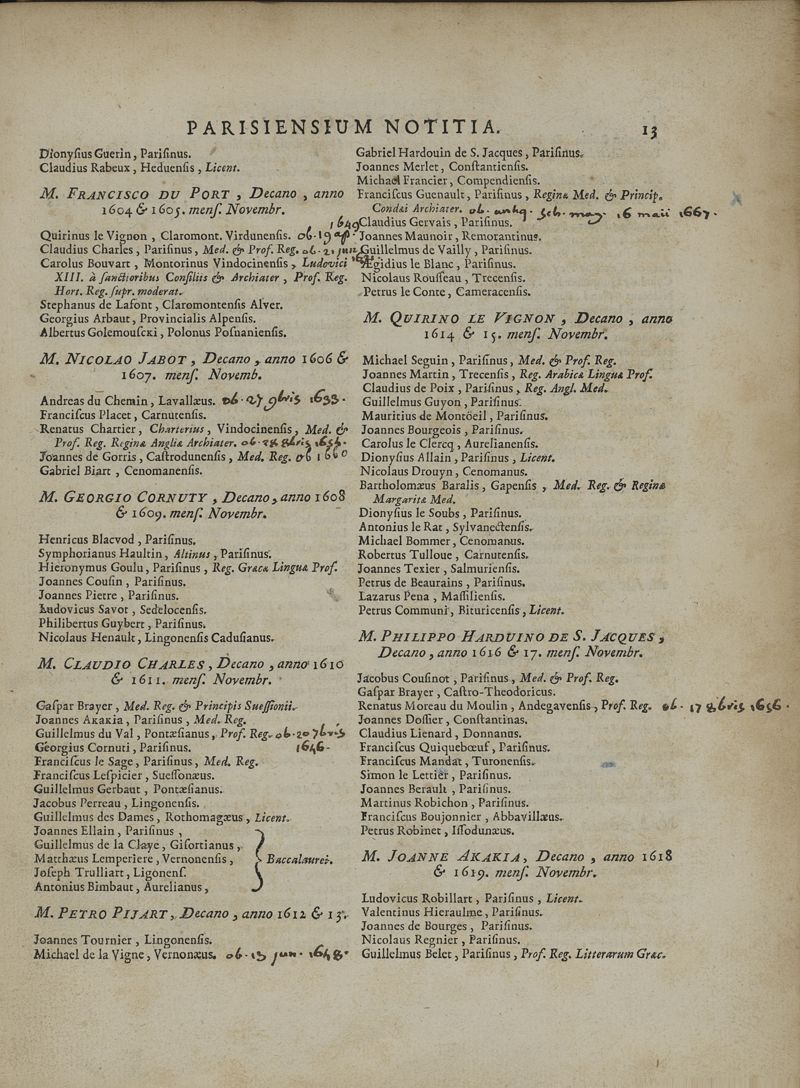 PARISIENSIUM NOTITIA.
13
Dionyſius Guerin, Pariſinus.
Claudius Rabeux, Heduenſis, Licent.
M. FRANCISCO DU PORT, Decano, anno
1604 & 1605. menſ. Novembr.
Quirinus le Vignon, Claromont. Virdunenſis. ob. 19 ap. 1649
Claudius Charles, Pariſinus, Med. & Prof. Reg. ob. 21 jun.
Carolus Bouvart, Montorinus Vindocinenſis, Ludovici
XIII. à ſanctioribus Conſiliis & Archiater, Prof. Reg.
Hort. Reg. ſupr. moderat.
Stephanus de Lafont, Claromontenſis Alver.
Georgius Arbaut, Provincialis Alpenſis.
Albertus Golemouſcκi, Polonus Poſnanienſis.
M. NICOLAO JABOT, Decano, anno 1606 &
1607. menſ. Novemb.
Andreas du Chemin, Lavallæus. ob. 27 9bris 1633.
Franciſcus Placet, Carnutenſis.
Renatus Chartier, Charterius, Vindocinenſis, Med. &
Prof. Reg. Reginæ Angliæ Archiater. ob. 28 8bris 1654.
Joannes de Gorris, Caſtrodunenſis, Med. Reg. ob 1660
Gabriel Biart, Cenomanenſis.
M. GEORGIO CORNUTY, Decano, anno 1608
& 1609. menſ. Novembr.
Henricus Blacvod, Pariſinus.
Symphorianus Haultin, Altinus, Pariſinus.
Hieronymus Goulu, Pariſinus, Reg. Græcæ Linguæ Prof.
Joannes Couſin, Pariſinus.
Joannes Pietre, Pariſinus.
Ludovicus Savot, Sedelocenſis.
Philibertus Guybert, Pariſinus.
Nicolaus Henault, Lingonenſis Caduſianus.
M. CLAUDIO CHARLES, Decano, anno 1610
& 1611. menſ. Novembr.
Gaſpar Brayer, Med. Reg. & Principis Sueſſionii.
Joannes Aκaκia, Pariſinus, Med. Reg.
Guillelmus du Val, Pontæſianus, Prof. Reg. ob. 20 7bris
Georgius Cornuti, Pariſinus. 1646.
Franciſcus le Sage, Pariſinus, Med. Reg.
Franciſcus Leſpicier, Sueſſonæus.
Guillelmus Gerbaut, Pontæſianus.
Jacobus Perreau, Lingonenſis.
Guillelmus des Dames, Rothomagæus, Licent.
Joannes Ellain, Pariſinus,
Guillelmus de la Claye, Giſortianus,
Matthæus Lemperiere, Vernonenſis, Baccalaurei.
Joſeph Trulliart, Ligonenſ.
Antonius Bimbaut, Aurelianus,
M. PETRO PIJART, Decano, anno 1612 & 13.
Joannes Tournier, Lingonenſis.
Michael de la Vigne, Vernonæus. ob. 13 jun. 1648.
Gabriel Hardouin de S. Jacques, Pariſinus.
Joannes Merlet, Conſtantienſis.
Michael Francier, Compendienſis.
Franciſcus Guenault, Pariſinus, Reginæ Med. & Princip.
Condæi Archiater. ob. 16 maii 1667.
Claudius Gervais, Pariſinus.
Joannes Maunoir, Remorantinus.
Guillelmus de Vailly, Pariſinus.
Ægidius le Blanc, Pariſinus.
Nicolaus Rouſſeau, Trecenſis.
Petrus le Conte, Cameracenſis.
M. QUIRINO LE VIGNON, Decano, anno
1614 & 15. menſ. Novembr.
Michael Seguin, Pariſinus, Med. & Prof. Reg.
Joannes Martin, Trecenſis, Reg. Arabicæ Linguæ Prof.
Claudius de Poix, Pariſinus, Reg. Angl. Med.
Guillelmus Guyon, Pariſinus.
Mauritius de Montöeil, Pariſinus.
Joannes Bourgeois, Pariſinus.
Carolus le Clercq, Aurelianenſis.
Dionyſius Allain, Pariſinus, Licent.
Nicolaus Drouyn, Cenomanus.
Bartholomæus Baralis, Gapenſis, Med. Reg. & Reginæ
Margaritæ Med.
Dionyſius le Soubs, Pariſinus.
Antonius le Rat, Sylvanectenſis.
Michael Bommer, Cenomanus.
Robertus Tulloue, Carnutenſis.
Joannes Texier, Salmurienſis.
Petrus de Beaurains, Pariſinus.
Lazarus Pena, Maſſilienſis.
Petrus Communi, Bituricenſis, Licent.
M. PHILIPPO HARDUINO DE S. JACQUES,
Decano, anno 1616 & 17. menſ. Novembr.
Jacobus Couſinot, Pariſinus, Med. & Prof. Reg.
Gaſpar Brayer, Caſtro-Theodoricus.
Renatus Moreau du Moulin, Andegavenſis, Prof. Reg. ob. 17 8bris 1656.
Joannes Doſſier, Conſtantinas.
Claudius Lienard, Donnanus.
Franciſcus Quiquebœuf, Pariſinus.
Franciſcus Mandat, Turonenſis.
Simon le Lettier, Pariſinus.
Joannes Berault, Pariſinus.
Martinus Robichon, Pariſinus.
Franciſcus Boujonnier, Abbavillæus.
Petrus Robinet, Iſſodunæus.
M. JOANNE AKAKIA, Decano, anno 1618
& 1619. menſ. Novembr.
Ludovicus Robillart, Pariſinus, Licent.
Valentinus Hieraulme, Pariſinus.
Joannes de Bourges, Pariſinus.
Nicolaus Regnier, Pariſinus.
Guillelmus Belet, Pariſinus, Prof. Reg. Litterarum Græc.